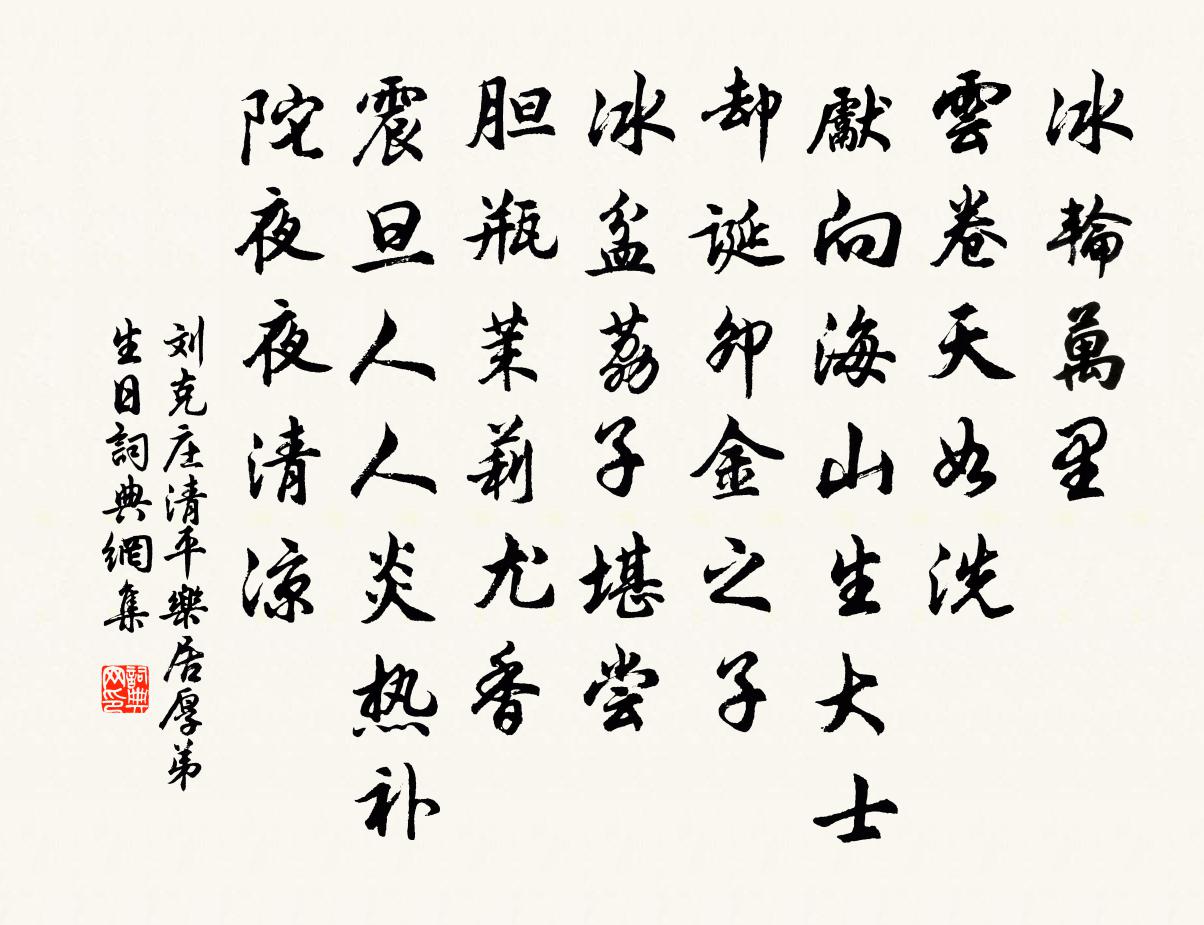 冰輪萬里
雲卷天如洗
獻向海山生大士
却誕卯金之子
冰盆荔子堪尝
胆瓶茉莉尤香
震旦人人炎热补
陀夜夜清凉
刘克庄清平樂居厚弟
生日詞典網集
詞典
网印